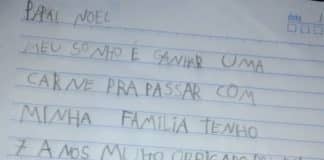 PAPAI NOEL
MEU SONHO É GANHAR UMA
CARNE PRA PASSAR COM
MINHA FAMILIA TENHO
7 ANOS MUITO OBRIGADO